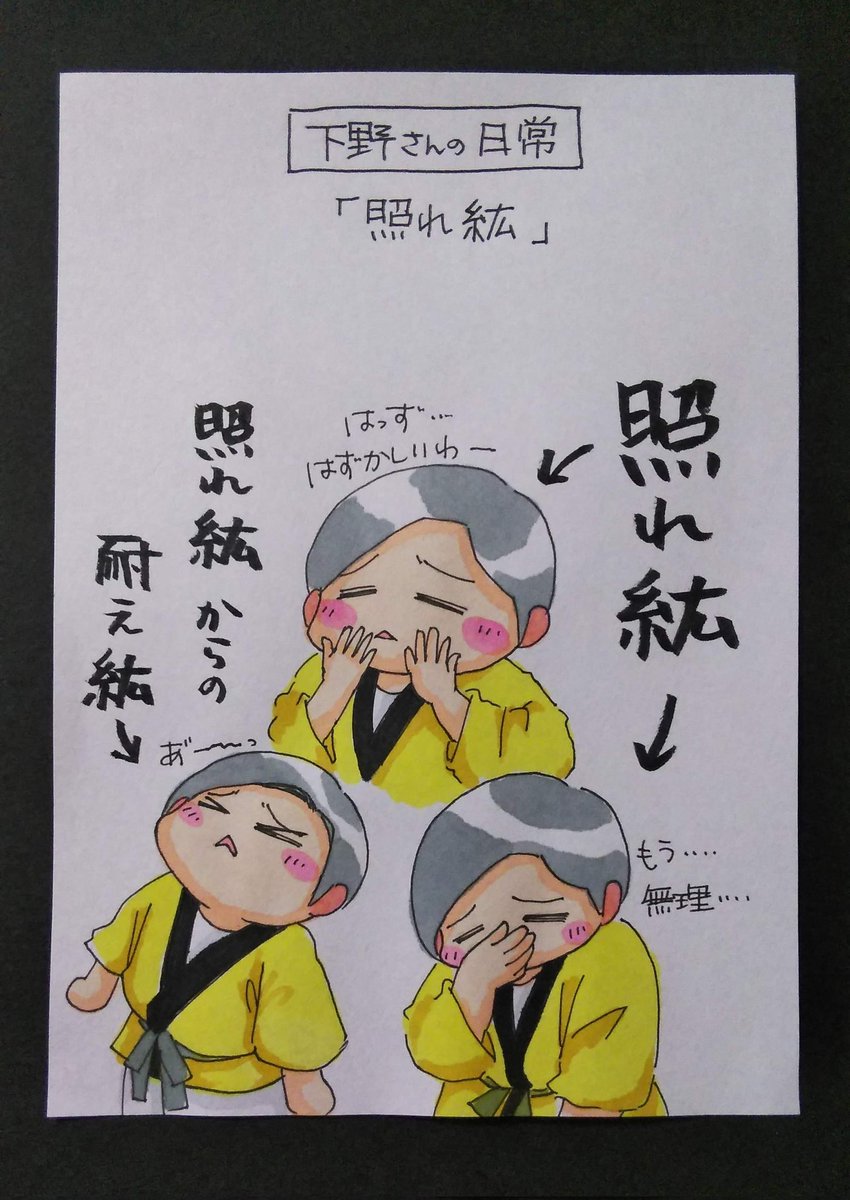 下野さんの日常
「照れ紘」
照れ紘
はっず…
はずかしいわー
照れ紘からの
耐え紘
あ゛〜〜っ
もう‥‥
無理‥‥